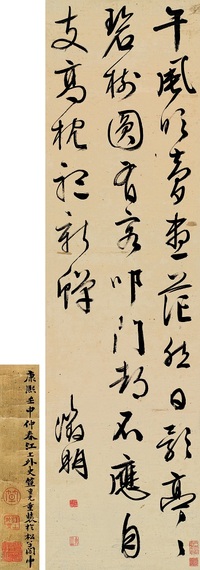 午風吹夢晝茫然日影亭〻
碧樹圓有客叩門都不應自
支高枕聽新蟬
徵明
康熙壬申仲春江上外史笪重光重裝於松閣中